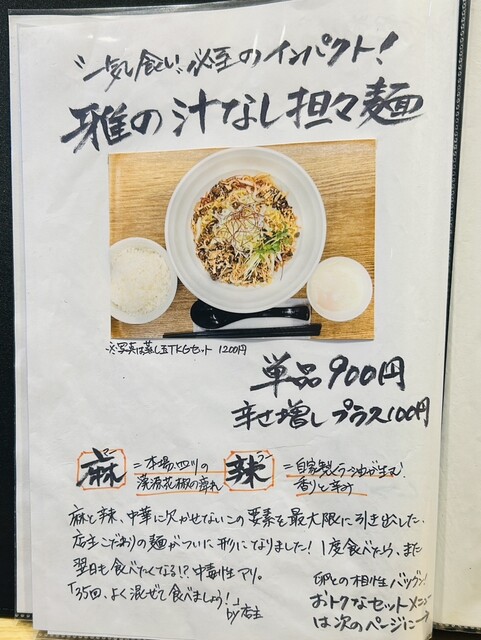 "一気食い"必至のインパクト!
雅の汁なし担々麺
※写真は蒸し玉TKGセット 1200円
単品900円
辛さ増し プラス100円
麻 マー =本場、四川の 漢源花椒の痺れ
辣 ラー =自家製ラー油が生む 香りと辛み
麻と辣、中華に欠かせないこの要素を最大限に引き出した、
店主こだわりの麺がついに形になりました!1度食べたら、また
翌日も食べたくなる!?中毒性アリ。
「35回、よく混ぜて食べましょう!」
by店主
卵との相性バツグン!
おトクなセットメニュー
は次のページに→